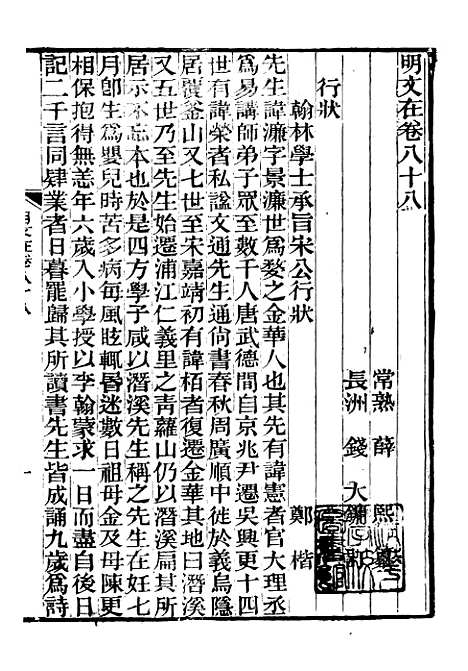 明文在卷八十八
常熟 薛 熙
長洲 錢 大鏞
行狀
翰林學士承旨宋公行狀 鄭 楷
先生諱濂字景濂世為婺之金華人也其先有諱憲者官大理丞
為易講師弟子眾至數千人唐武德間自京兆尹遷吳興更十四
世有諱榮者私諡文通先生通尚書春秋周廣順中徙於義烏隱
居覆釜山又七世至宋嘉靖初有諱栢者復遷金華其地曰潛溪
又五世乃至先生始遷浦江仁義里之青蘿山仍以潛溪扁其所
居示不忘本也於是四方學子咸以潛溪先生稱之先生在妊七
月卽生為嬰兒時苦多病每風眩輒昬迷數日祖母金及母陳更
相保抱得無恙年六歲入小學授以李翰蒙求一日而盡自後日
記二千言同肄業者日暮罷歸其所讀書先生皆成誦九歲為詩
明文在卷八十八
一